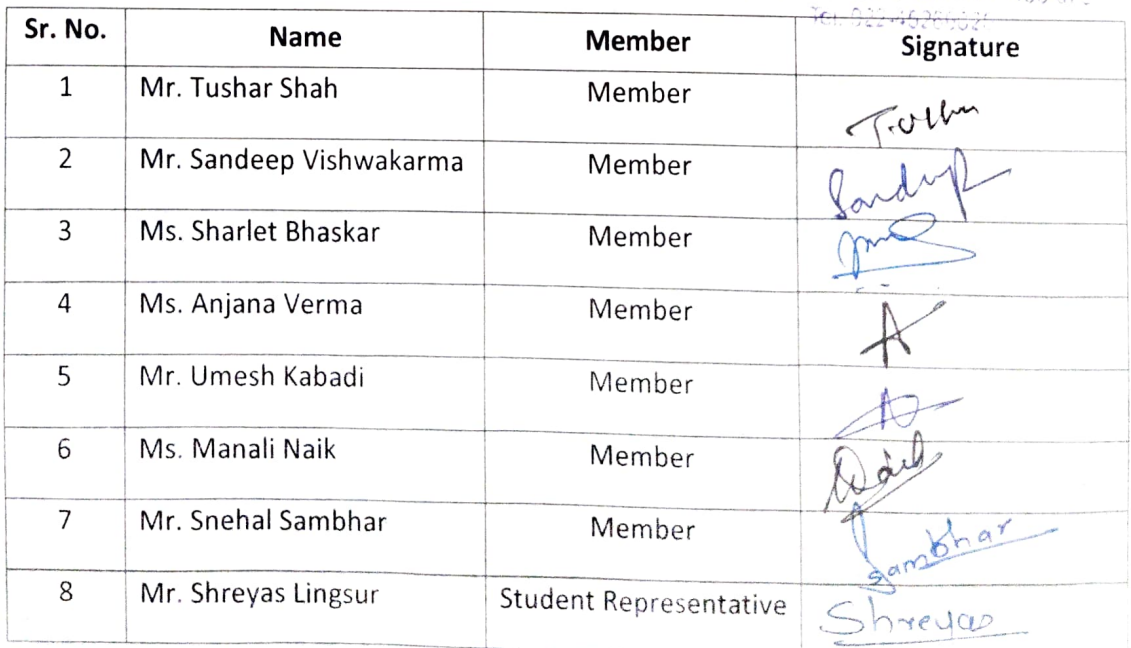 Sr. No. Name Member Signature
1 Mr. Tushar Shah Member
2 Mr. Sandeep Vishwakarma Member Sandeep
3 Ms. Sharlet Bhaskar Member
4 Ms. Anjana Verma Member
5 Mr. Umesh Kabadi Member
6 Ms. Manali Naik Member
7 Mr. Snehal Sambhar Member Sambhar
8 Mr. Shreyas Lingsur Student Representative Shreyas